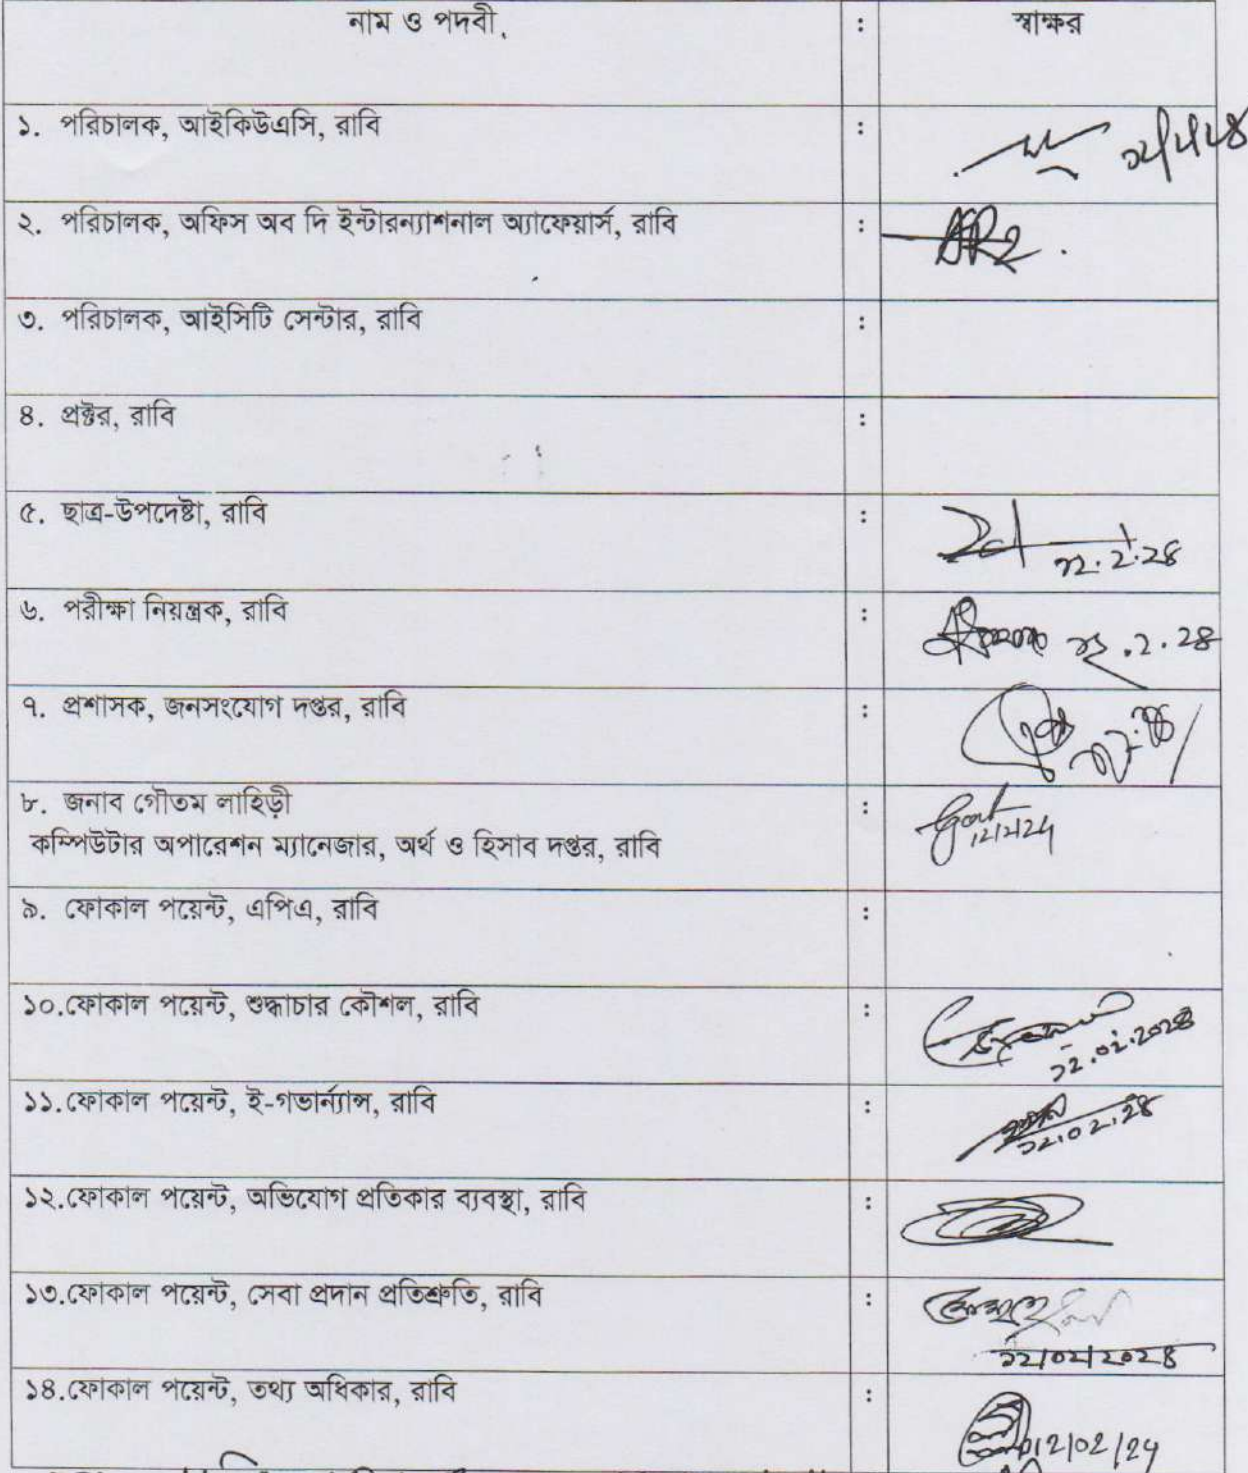 নাম ও পদবী : স্বাক্ষর
১. পরিচালক, আইকিউএসি, রাবি :
২. পরিচালক, অফিস অব দি ইন্টারন্যাশনাল অ্যাফেয়ার্স, রাবি :
৩. পরিচালক, আইসিটি সেন্টার, রাবি :
৪. প্রক্টর, রাবি :
৫. ছাত্র-উপদেষ্টা, রাবি : ১২.২.২৪
৬. পরীক্ষা নিয়ন্ত্রক, রাবি : ১২.২.২৪
৭. প্রশাসক, জনসংযোগ দপ্তর, রাবি :
৮. জনাব গৌতম লাহিড়ী :
কম্পিউটার অপারেশন ম্যানেজার, অর্থ ও হিসাব দপ্তর, রাবি 12/2/24
৯. ফোকাল পয়েন্ট, এপিএ, রাবি :
১০.ফোকাল পয়েন্ট, শুদ্ধাচার কৌশল, রাবি : ১২.০২.২০২৪
১১.ফোকাল পয়েন্ট, ই-গভার্ন্যান্স, রাবি : ১২.০২.২৪
১২.ফোকাল পয়েন্ট, অভিযোগ প্রতিকার ব্যবস্থা, রাবি :
১৩.ফোকাল পয়েন্ট, সেবা প্রদান প্রতিশ্রুতি, রাবি : ১২/০২/২০২৪
১৪.ফোকাল পয়েন্ট, তথ্য অধিকার, রাবি : 12/02/24